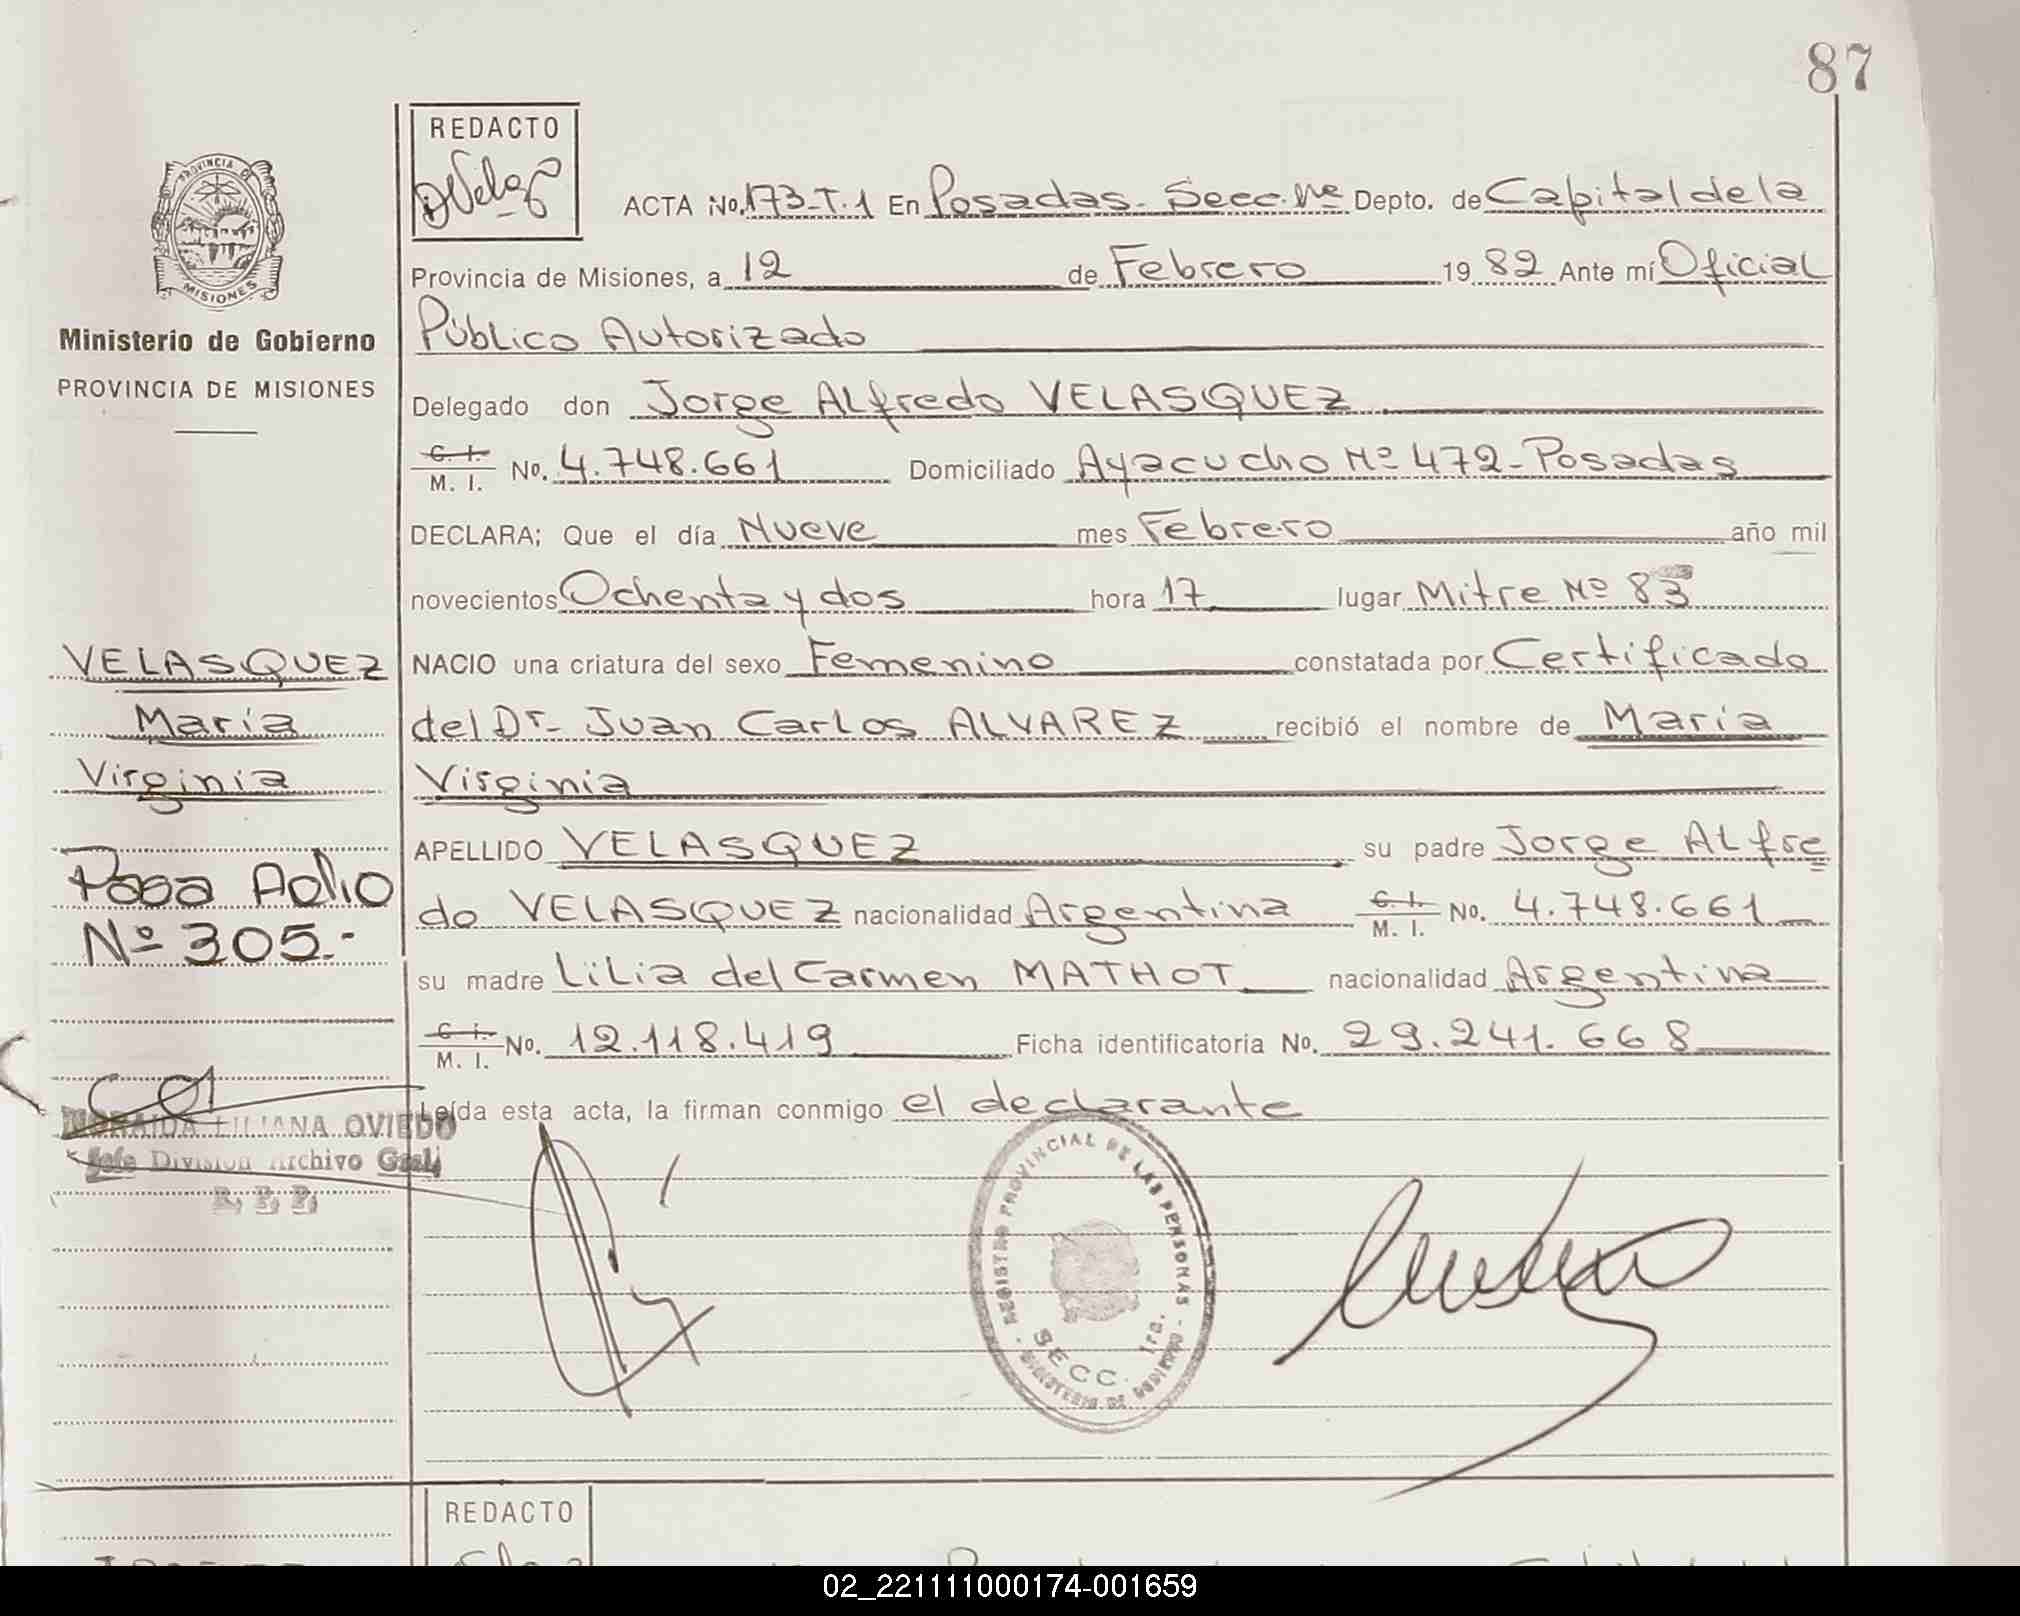 87
REDACTO
ACTA No. 173-T.1 En Posadas - Secc. 1ra Depto. de Capital de la
Provincia de Misiones, a 12 de Febrero 1982 Ante mí Oficial
Público Autorizado
Delegado don Jorge Alfredo VELASQUEZ
C. I. M. I. No. 4.748.661 Domiciliado Ayacucho Nº 472 - Posadas
DECLARA; Que el día Nueve mes Febrero año mil
novecientos Ochenta y dos hora 17 lugar Mitre Nº 83
NACIO una criatura del sexo Femenino constatada por Certificado
del Dr- Juan Carlos ALVAREZ recibió el nombre de María
Virginia
APELLIDO VELASQUEZ su padre Jorge Alfre
do VELASQUEZ nacionalidad Argentina C. I. M. I. No. 4.748.661
su madre Lilia del Carmen MATHOT nacionalidad Argentina
C. I. M. I. No. 12.118.419 Ficha identificatoria No. 29.241.668
Leída esta acta, la firman conmigo el declarante
PROVINCIA DE
MISIONES
Ministerio de Gobierno
PROVINCIA DE MISIONES
VELASQUEZ
María
Virginia
Pasa Folio
Nº 305.-
LILIANA OVIEDO
Jefe División Archivo Gral.
R. P. P.
REGISTRO PROVINCIAL DE LAS PERSONAS
SECC. 1ra.
MINISTERIO DE GOBIERNO
REDACTO
02_221111000174-001659